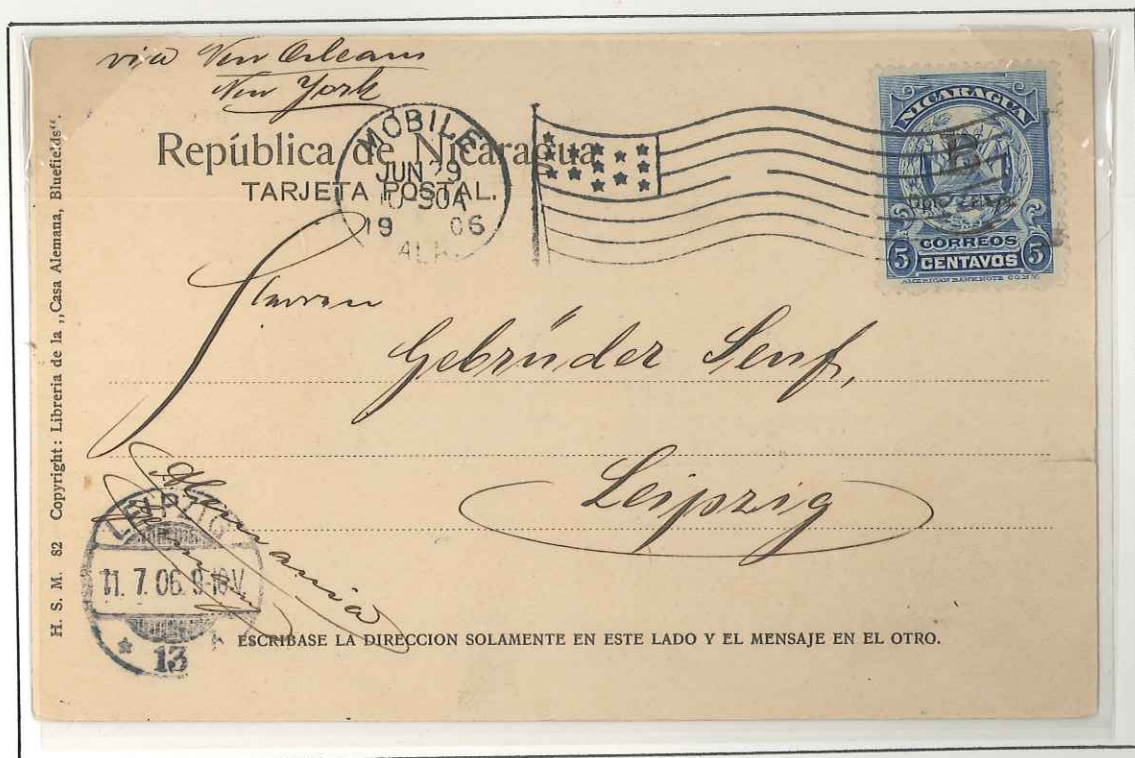 via New Orleans
New York
República de Nicaragua
TARJETA POSTAL.
MOBILE
JUN 29
10-30A
19 06
ALA.
NICARAGUA
B
CORREOS
5 CENTAVOS 5
AMERICAN BANK NOTE CO. N.Y.
Herren
Gebrüder Senf,
Leipzig
Alemania
LEIPZIG
11. 7. 06. 9-10V.
* 13
ESCRIBASE LA DIRECCION SOLAMENTE EN ESTE LADO Y EL MENSAJE EN EL OTRO.
H. S. M. 82 Copyright: Libreria de la „Casa Alemana, Bluefields“.